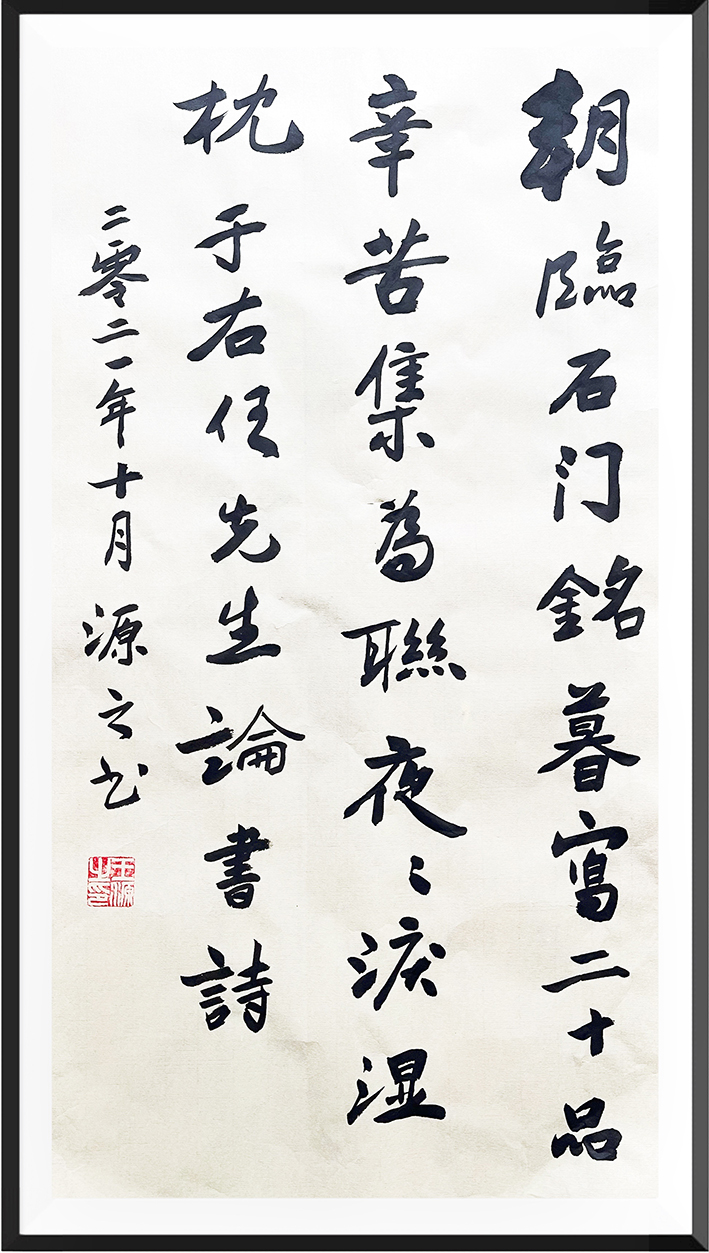 朝臨石门銘暮寫二十品
辛苦集為聯夜〻淚湿
枕于右任先生論書詩
二零二一年十月源之书
王源之印